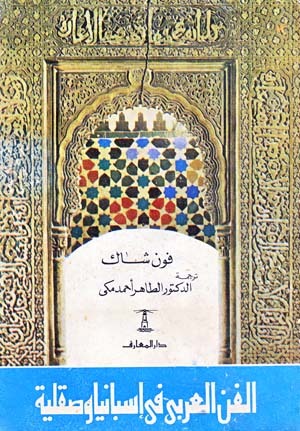 فون شاك
ترجمة
الدكتور الطاهر أحمد مكى
دار المعارف
الفن العربى فى إسبانيا وصقلية